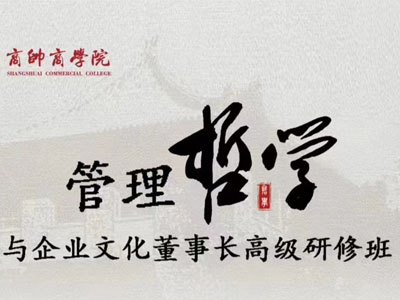 商帥商學院
SHANGSHUAI COMMERCIAL COLLEGE
管理哲学
与企业文化董事长高级研修班